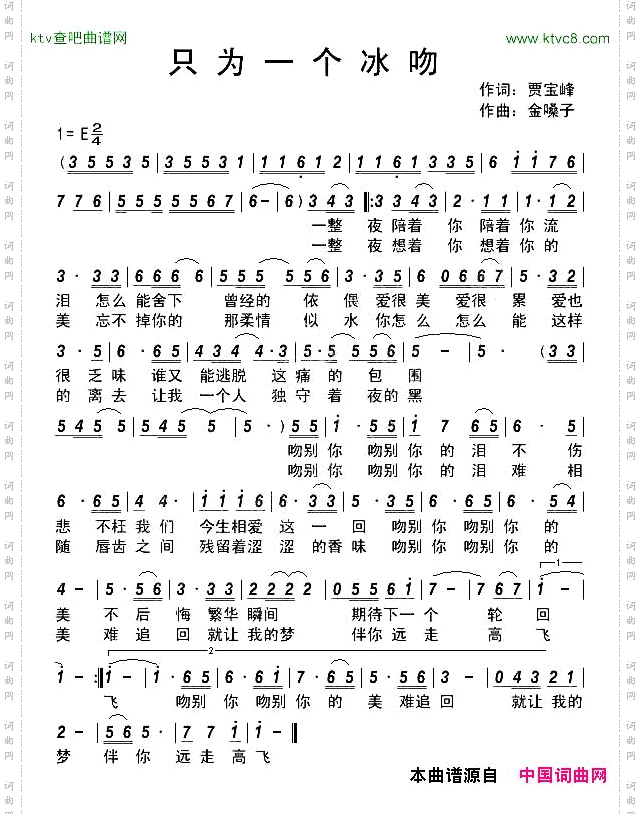 ktv查吧曲谱网
www.ktvc8.com
只为一个冰吻
作词：贾宝峰
作曲：金嗓子
1=E 2/4
(3 5 5 3 5 | 5 3 5 5 | 1 1 6 1 2 | 1 1 6 1 | 3 3 5 | 6 i i 7 6
7 7 6 | 5 5 5 5 5 6 7 | 6 - | 6) 3 4 3 ‖: 3 3 4 3 | 2· 1 1 | 1· 5 1 2
一整 夜陪着 你 陪着你流
一整 夜想着 你 想着你的
3· 3 2 | 6 6 6 6 | 5 5 5 5 5 5 | 3· 3 3 | 6 0 6 6 7 | 5· 3 2
泪 怎么能舍下 曾经的 依 偎 爱很美 爱很 累 爱也
美 忘不掉你的 那柔情 似 水你怎么 怎么 能 这样
3· 5 | 6· 6 5 | 4 3 4 4·3 | 5·5 5 5 6 | 5 - | 5· (3 3
很 乏味 谁又 能逃脱 这痛的 包围
的 离去 让我 一个人 独守着 夜的黑
5 4 5 5 | 5 4 5 5 5 | 5·) 5 5 | i· 5 5 | i 7 6 5 | 6· 5
吻别 你 吻别 你 的 泪 不 伤
吻别 你 吻别 你 的 泪 难 相
6· 6 5 | 4 4· | i i i 6 | 6· 3 3 | 5· 3 5 | 6· 5 4
悲 不枉我们 今生相爱这一回 吻别你 吻别你的
随 唇齿之间 残留着涩 涩的香味 吻别你 吻别你的
4 - | 5· 5 6 | 3 3 3 3 | 2 2 2 2 | 0 5 5 6 i | 7 - | 7 6 7 | i -
1
美 不后 悔繁华瞬间 期待下一个 轮 回
美 难追 回就让我的梦 伴你远走 高 飞
2
i - :‖ i - | i· 6 5 | i· 6 5 | i 6 5 | 3· 5 6 | 3· | 0 4 3 2 1
飞 吻别 你 吻别 你 的 美 难追 回 就让我的
2 - | 5 6 5 | 5· 7 | 7 i i | i - ‖
梦 伴你 远走高飞
本曲谱源自 中国词曲网